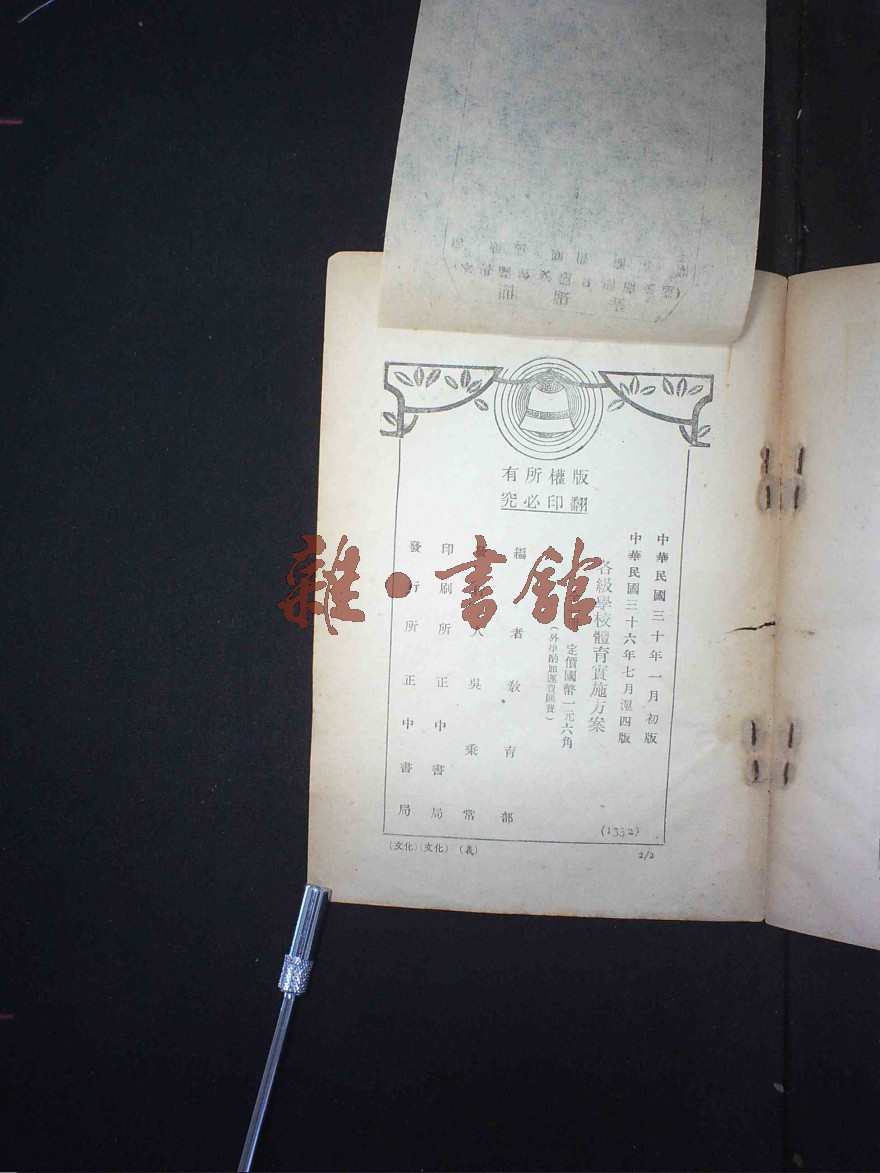 版權所有
翻印必究
中華民國三十年一月初版
中華民國三十六年七月滬四版
各級學校體育實施方案
定價國幣一元六角
(外埠酌加運費匯費)
編者教育部
人吳秉常
印刷所正中書局
發行所正中書局
(1332)
(文化)(文化)(義)
2/2
雜·書館